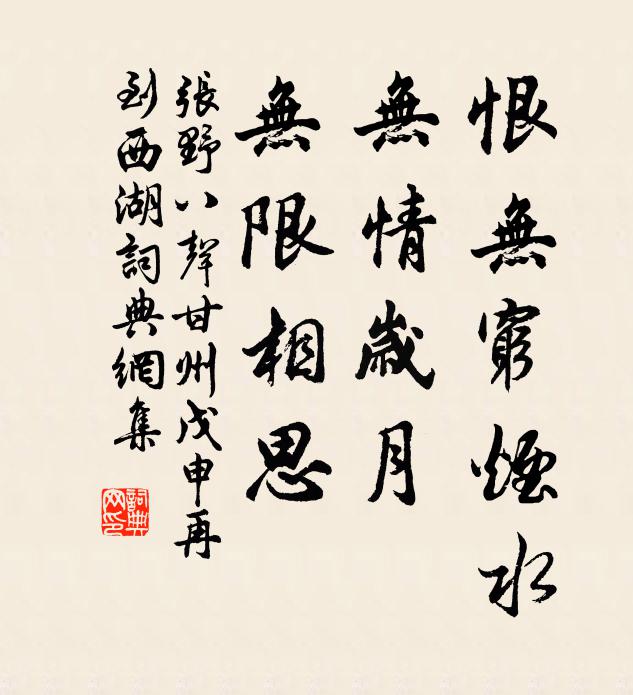 恨無窮煙水
無情歲月
無限相思
張野八聲甘州戊申再
到西湖詞典網集
詞典
网印